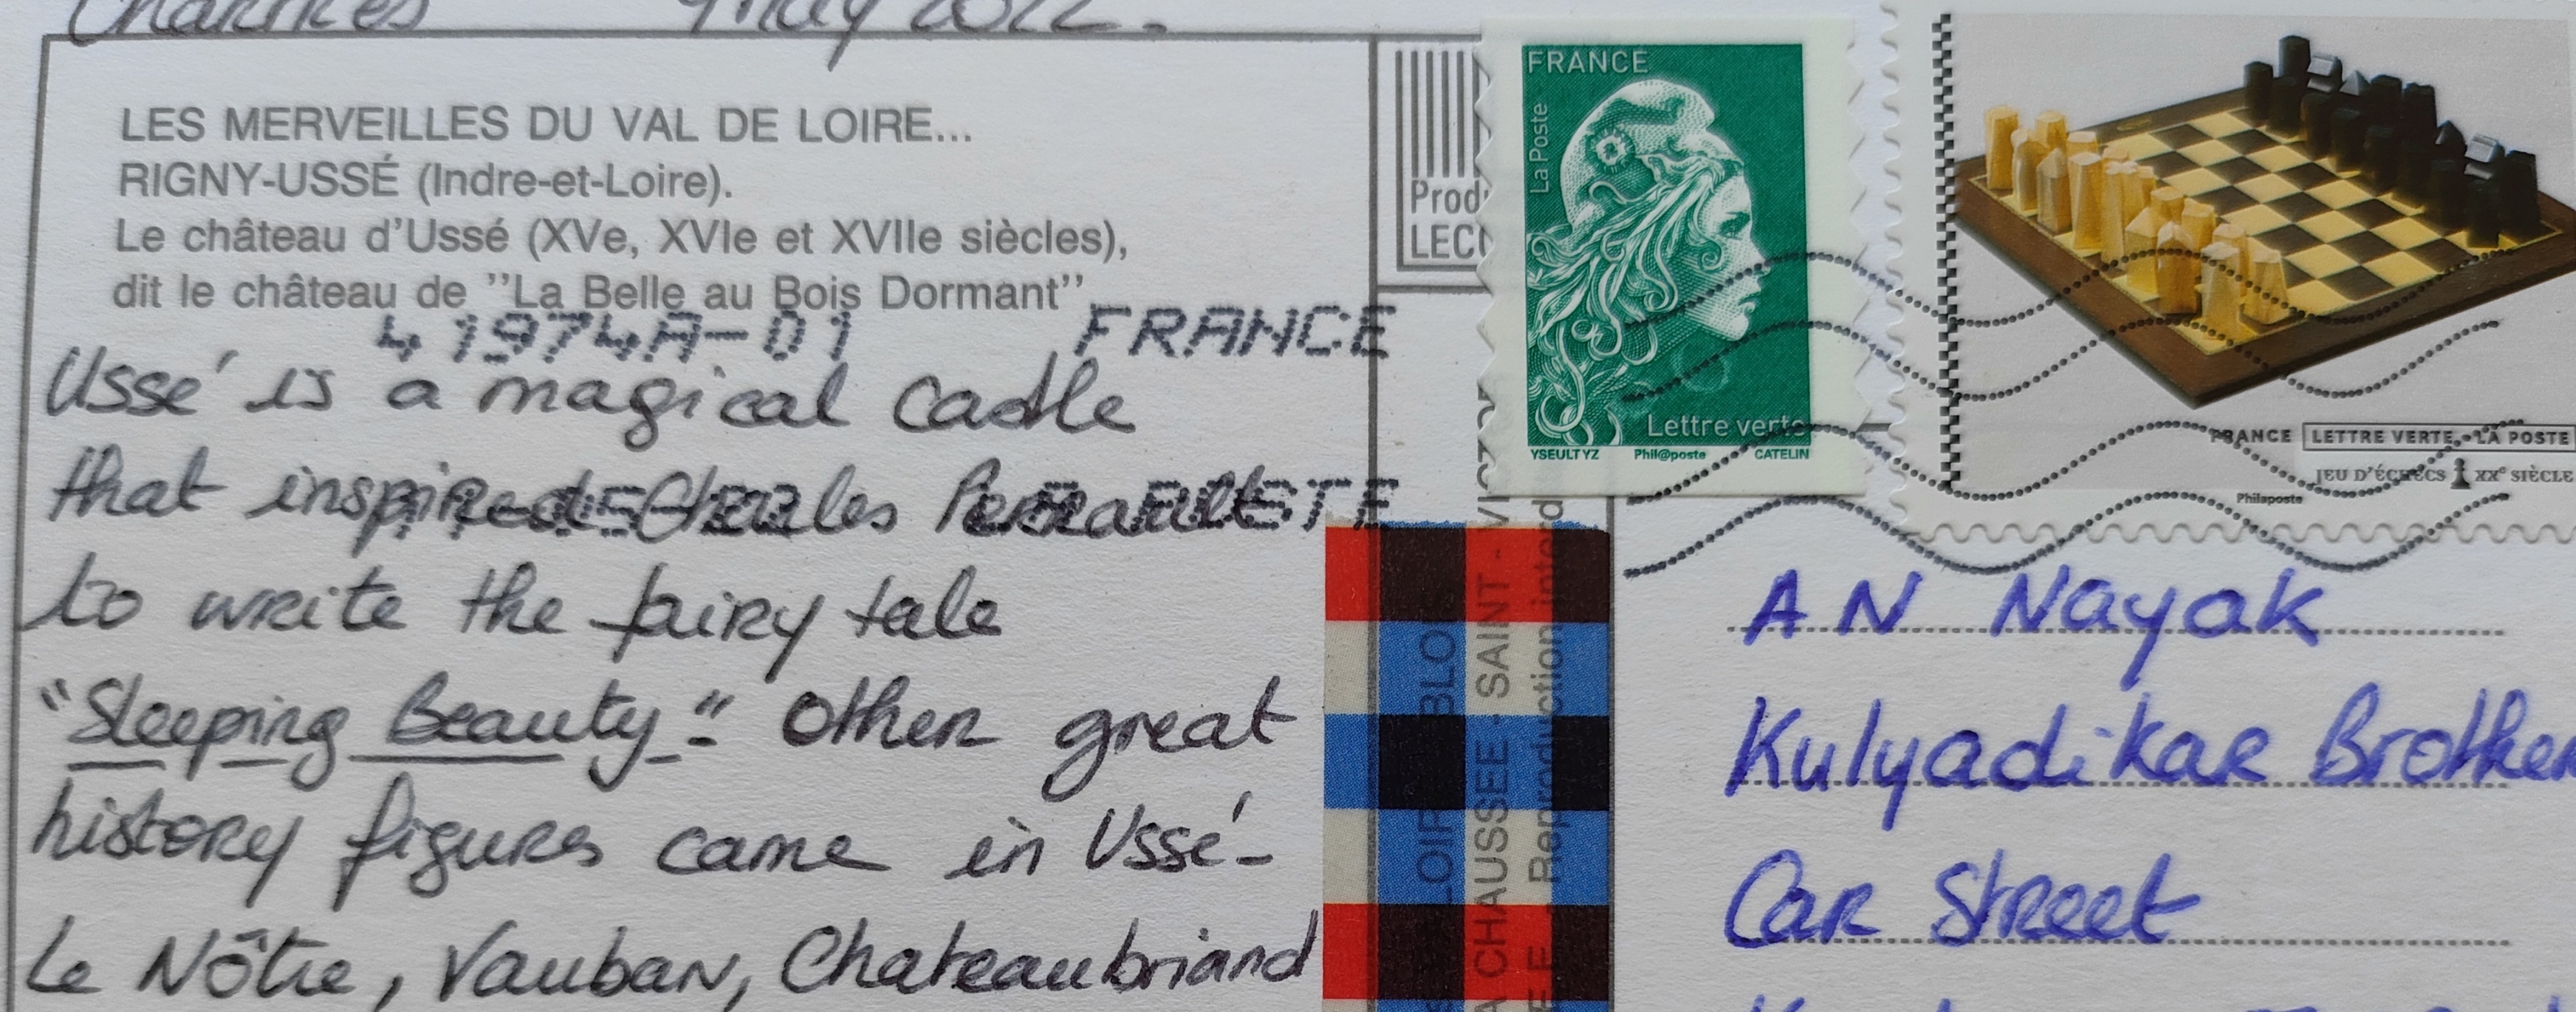 Chartres 9 may 2022.
LES MERVEILLES DU VAL DE LOIRE...
RIGNY-USSÉ (Indre-et-Loire).
Le château d'Ussé (XVe, XVIe et XVIIe siècles),
dit le château de "La Belle au Bois Dormant"
41974A-01 FRANCE
Ussé is a magical castle
that inspired Charles Perrault
LA POSTE
to write the fairy tale
"Sleeping Beauty" Other great
history figures came in Ussé-
Le Nôtre, Vauban, Chateaubriand
Prod
LEC
FRANCE
La Poste
Lettre verte
YSEULT YZ Phil@poste CATELIN
FRANCE LETTRE VERTE - LA POSTE
JEU D'ÉCHECS XXe SIÈCLE
Philaposte
LOIR BLO
CHAUSSEE - SAINT - VICTOR
Reproduction interd
A N Nayak
Kulyadikar Brother
Car Street